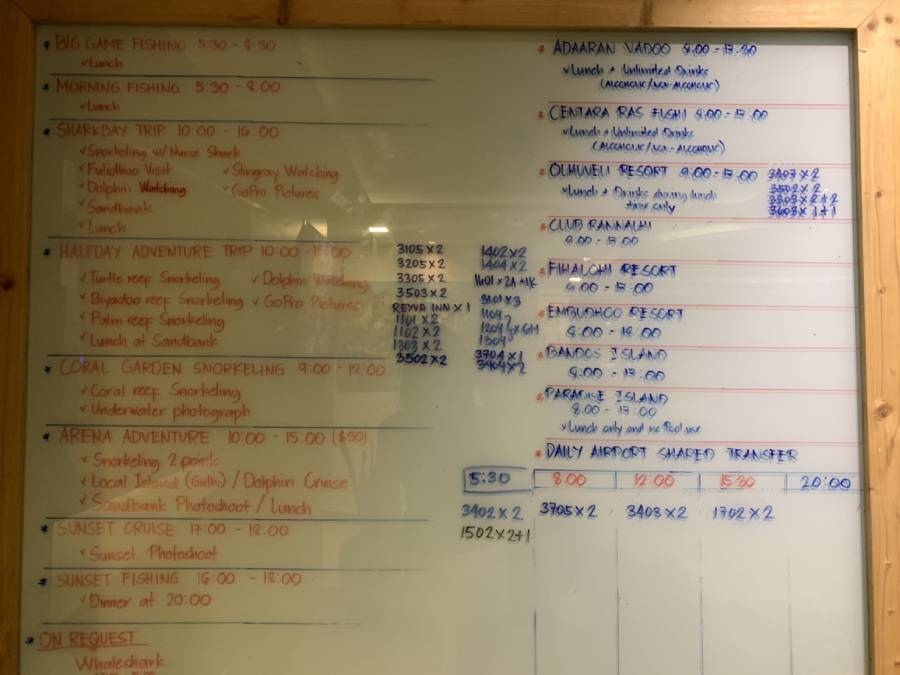 * BIG GAME FISHING 5:30 - 8:30
✓Lunch
* MORNING FISHING 5:30 - 8:00
✓Lunch
* SHARKBAY TRIP 10:00 - 16:00
✓Snorkeling w/ Nurse Shark
✓Fulidhoo Visit ✓Stingray Watching
✓Dolphin Watching ✓GoPro Pictures
✓Sandbank
✓Lunch
* HALFDAY ADVENTURE TRIP 10:00 - :00
✓Turtle reef Snorkeling ✓Dolphin Watching
✓Biyadoo reef Snorkeling ✓GoPro Pictures
✓Palm reef Snorkeling
✓Lunch at Sandbank
3105×2
3205×2
3305×2
3503×2
REYVA INN×1
1101×2
1102×2
1303×2
3502×2
1402×2
1404×2
1601×2A+1K
3101×3
1104
1204 }×6H
1304
3704×1
3404×2
* CORAL GARDEN SNORKELING 9:00 - 12:00
✓Coral reef Snorkeling
✓Underwater photograph
* ARENA ADVENTURE 10:00 - 15:00 ($30)
✓Snorkeling 2 points
✓Local Island (Gulhi) / Dolphin Cruise
✓Sandbank Photoshoot / Lunch
* SUNSET CRUISE 17:00 - 18:00
✓Sunset Photoshoot
* SUNSET FISHING 16:00 - 18:00
✓Dinner at 20:00
* ON REQUEST
Whaleshark
* ADAARAN VADOO 9:00 - 17:30
✓Lunch + Unlimited Drinks
(ALCOHOLIC/NON-ALCOHOLIC)
* CENTARA RAS FUSHI 9:00 - 17:00
✓Lunch + Unlimited Drinks
(ALCOHOLIC/NON-ALCOHOLIC)
* OLHUVELI RESORT 9:00 - 17:00
✓Lunch + Drinks during lunch
time only
3407×2
3502×2
3303×2+2
3603×1+1
* CLUB RANNALHI
9:00 - 17:00
* FIHALOHI RESORT
9:00 - 17:00
* EMBUDHOO RESORT
9:00 - 18:00
* BANDOS ISLAND
8:00 - 17:00
* PARADISE ISLAND
8:00 - 17:00
✓Lunch only and no Pool use
* DAILY AIRPORT SHARED TRANSFER
5:30 8:00 12:00 15:30 20:00
3402×2 3705×2 3403×2 1702×2
1502×2+1